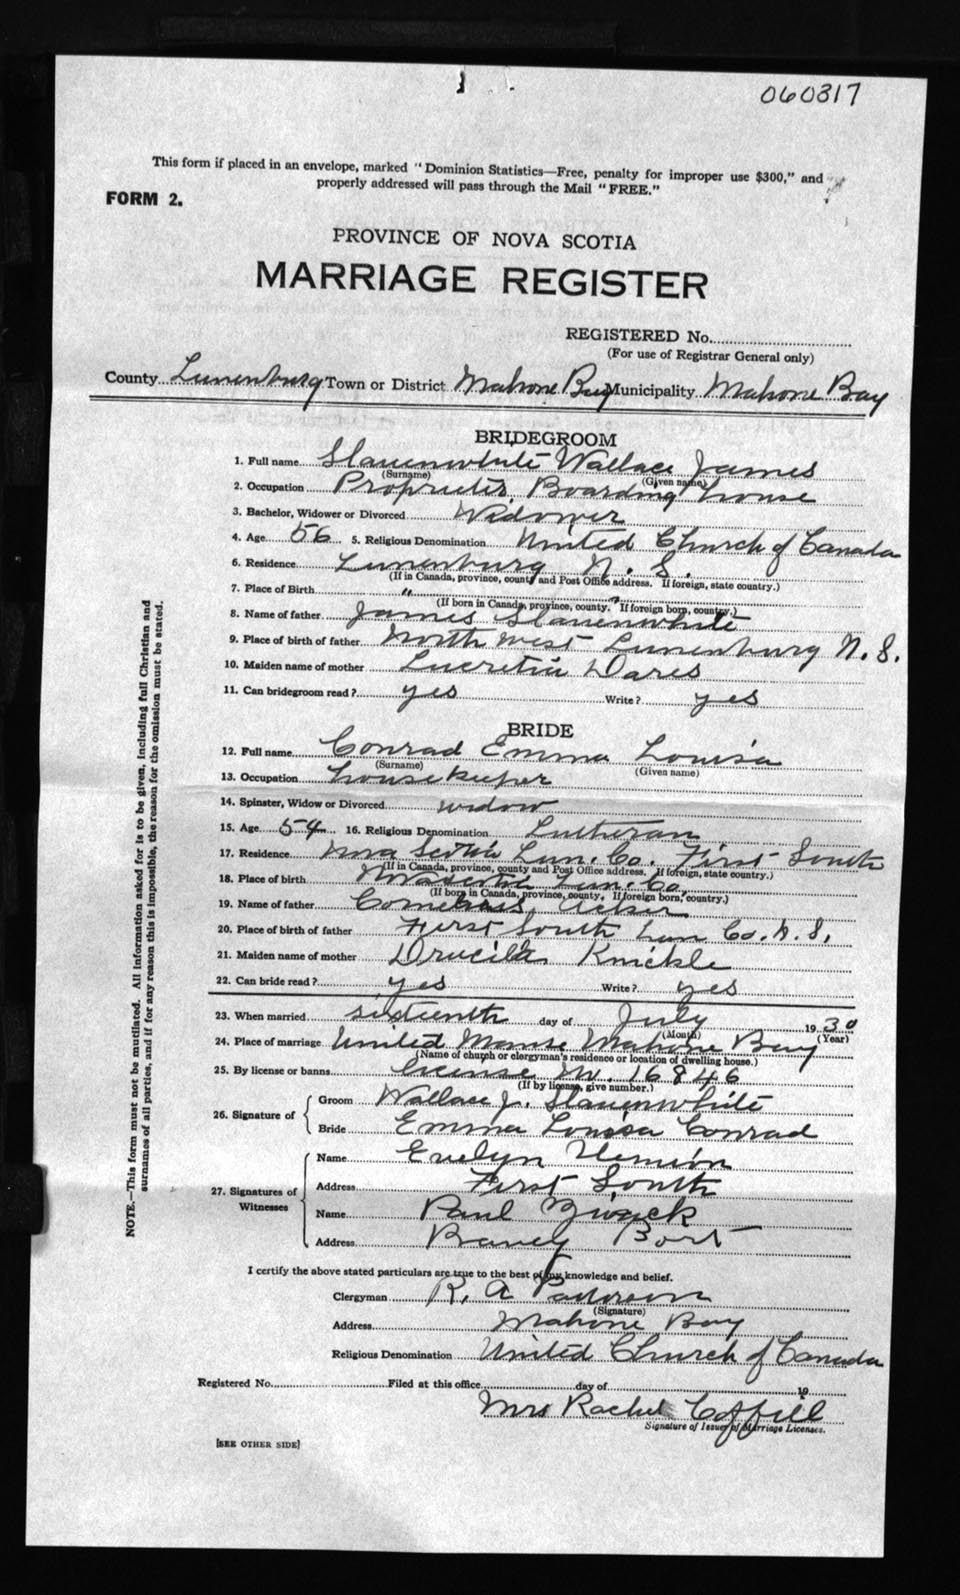 060317
This form if placed in an envelope, marked "Dominion Statistics—Free, penalty for improper use $300," and
properly addressed will pass through the Mail "FREE."
FORM 2.
PROVINCE OF NOVA SCOTIA
MARRIAGE REGISTER
REGISTERED No.
(For use of Registrar General only)
County Lunenburg Town or District Mahone Bay Municipality Mahone Bay
BRIDEGROOM
1. Full name Slauenwhite Wallace James
(Surname) (Given name)
2. Occupation Proprietor, Boarding house
3. Bachelor, Widower or Divorced Widower
4. Age 56 5. Religious Denomination United Church of Canada
6. Residence Lunenburg N. S.
(If in Canada, province, county and Post Office address. If foreign, state country.)
7. Place of Birth " "
(If born in Canada, province, county. If foreign born, country.)
8. Name of father James Slauenwhite
9. Place of birth of father North West Lunenburg N. S.
10. Maiden name of mother Lucretia Dares
11. Can bridegroom read? yes Write? yes
BRIDE
12. Full name Conrad Emma Louisa
(Surname) (Given name)
13. Occupation housekeeper
14. Spinster, Widow or Divorced widow
15. Age 54 16. Religious Denomination Lutheran
17. Residence Nova Scotia Lun. Co. First South
(If in Canada, province, county and Post Office address. If foreign, state country.)
18. Place of birth Nova Scotia Lun. Co.
(If born in Canada, province, county. If foreign born, country.)
19. Name of father Cornelius Acker
20. Place of birth of father First South Lun Co. N. S.
21. Maiden name of mother Drucilla Knickle
22. Can bride read? yes Write? yes
23. When married sixteenth day of July 1930
(Month) (Year)
24. Place of marriage United Manse Mahone Bay
(Name of church or clergyman's residence or location of dwelling house.)
25. By license or banns License No. 16846
(If by license, give number.)
26. Signature of Groom Wallace J. Slauenwhite
Bride Emma Louisa Conrad
27. Signatures of Witnesses
Name Evelyn
Address First South
Name Paul Zwick
Address Port
I certify the above stated particulars are true to the best of my knowledge and belief.
Clergyman R. A. Patterson
(Signature)
Address Mahone Bay
Religious Denomination United Church of Canada
Registered No. Filed at this office day of 19
Mrs Rachel Coffill
Signature of Issuer of Marriage Licenses.
[SEE OTHER SIDE]
NOTE.—This form must not be mutilated. All information asked for is to be given, including full Christian and
surnames of all parties, and if for any reason this is impossible, the reason for the omission must be stated.